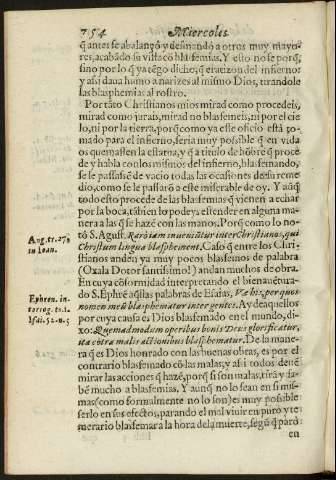 754 Miercoles
q̃ antes se abalançó y desmandó a otros muy mayores, acabãdo su vista cõ blasfemias. Y esto no se porq̃,
sino por lo q̃ ya tẽgo dicho, q̃ era tizon del infierno
y assi daua humo a narizes al mismo Dios, tirandole
las blasphemias al rostro.
Por tãto Christianos mios mirad como procedeis,
mirad como jurais, mirad no blasfemeis, ni por el cielo,
ni por la tierra, porq̃ como ya esse oficio está tomado
para el infierno, seria muy possible q̃ en vida
os quemassen la estatua, y q̃ a titulo de hõbre q̃ procede
y habla con los mismos del infierno, blasfemando,
se le passasse de vacio todas las ocasiones de su remedio,
como se le passarõ a este miserable de oy. Y aũq̃
todo esto procede de las blasfemias q̃ vienen a echar
por la boca, tãbien lo podeys estender en alguna manera
a las q̃ se hazẽ con las manos. Porq̃ como lo notó
S. Agust. Rarò iam inueniũtur inter Christianos, qui
Christum lingua blasphement. Casi q̃ entre los Christianos
andẽn ya muy pocos blasfemos de palabra
(Oxala Dotor santissimo!) andan muchos de obra.
En cuya cõformidad interpretando el bienauẽturado
S. Ephrẽ aq̃llas palabras de Esaias, Væ his, per quos
nomen meũ blasphematur inter gentes. Ay de aquellos
por cuya causa es Dios blasfemado en el mundo, dixo:
Quemadmodum operibus bonis Deus glorificatur,
ita cõtra malis actionibus blasphematur. De la manera
q̃ es Dios honrado con las buenas obras, es por el
contrario blasfemado cõ las malas, y assi todos deuẽ
mirar las acciones q̃ hazẽ, porq̃ si son malas, tirã y sabẽ
mucho a blasfemias. Y aunq̃ no lo sean en si mismas
(como formalmente no lo son) es muy possible
serlo en sus efectos, parando el mal viuir en puro y temerario
blasfemar a la hora dela muerte, segũ q̃ parò
en
Aug. tr. 27.
in Ioan.
Ephren. in
Isai. 52. n. 5